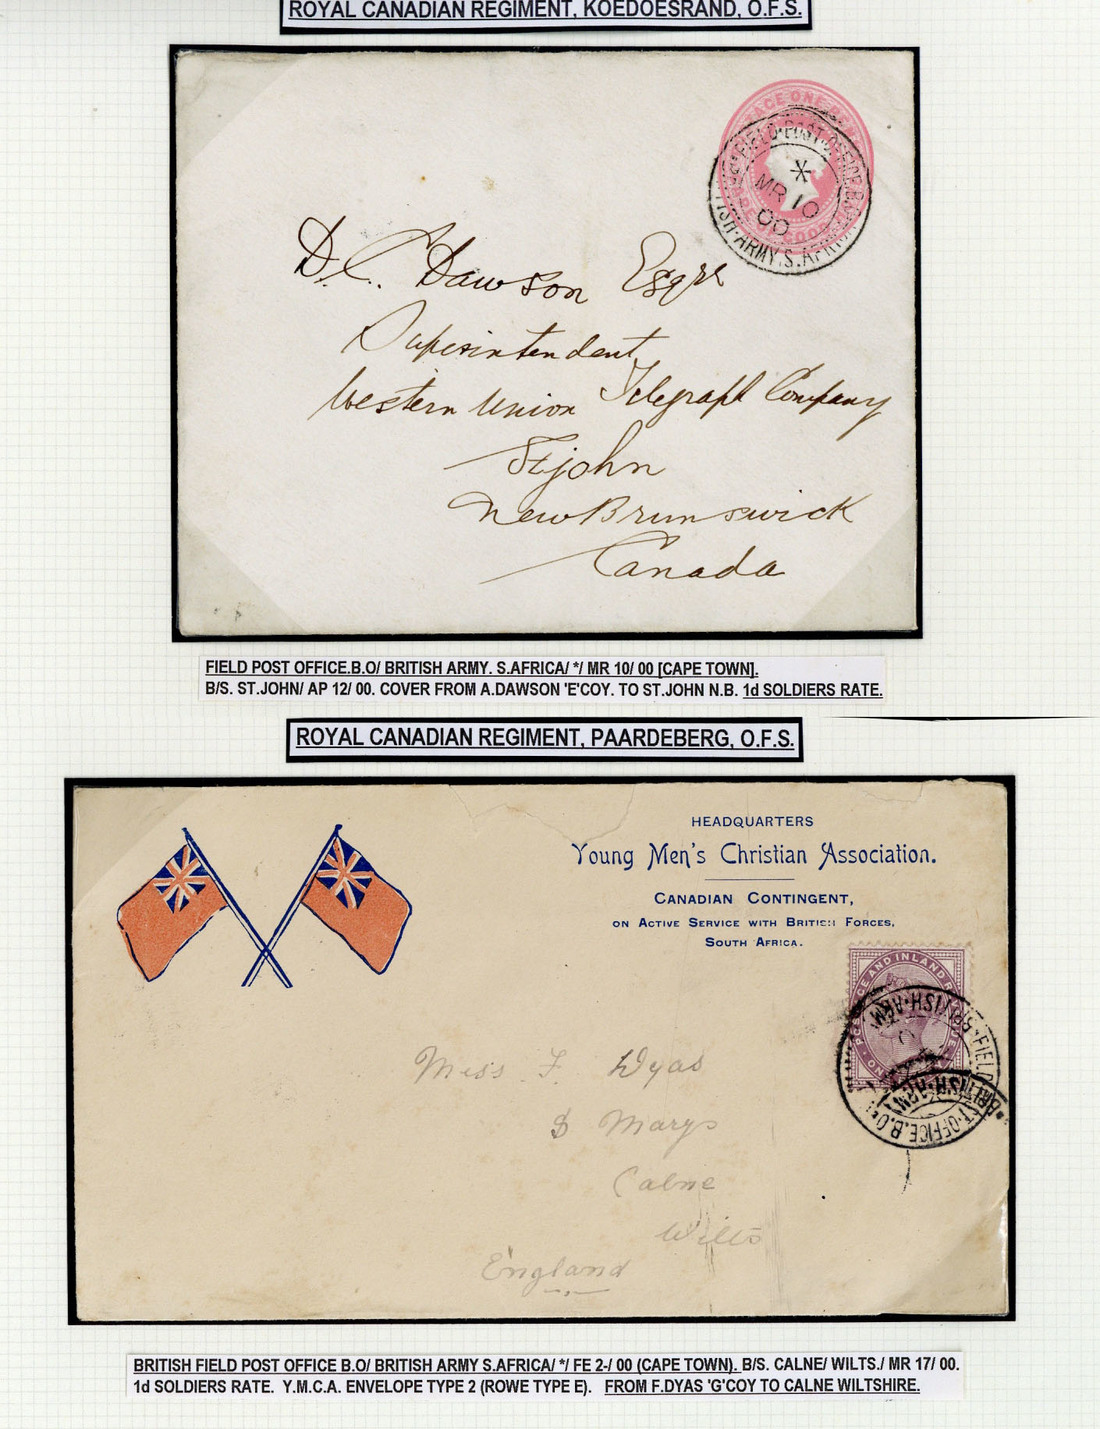 ROYAL CANADIAN REGIMENT, KOEDOESRAND, O.F.S.
FIELD·POST·OFFICE.B.O
MR 10
00
ARMY.S.AFRICA
D. C. Dawson Esqre
Superintendent
Western Union Telegraph Company
St john
New Brunswick
Canada
FIELD POST OFFICE.B.O/ BRITISH ARMY. S.AFRICA/ */ MR 10/ 00 [CAPE TOWN].
B/S. ST.JOHN/ AP 12/ 00. COVER FROM A.DAWSON 'E'COY. TO ST.JOHN N.B. 1d SOLDIERS RATE.
ROYAL CANADIAN REGIMENT, PAARDEBERG, O.F.S.
HEADQUARTERS
Young Men's Christian Association.
CANADIAN CONTINGENT,
ON ACTIVE SERVICE WITH BRITISH FORCES,
SOUTH AFRICA.
AND INLAND
FIELD
OFFICE.B.O
BRITISH·ARM
Miss F. Dyas
S Marys
Calne
Wilts
England
BRITISH FIELD POST OFFICE B.O/ BRITISH ARMY S.AFRICA/ */ FE 2-/ 00 (CAPE TOWN). B/S. CALNE/ WILTS./ MR 17/ 00.
1d SOLDIERS RATE. Y.M.C.A. ENVELOPE TYPE 2 (ROWE TYPE E). FROM F.DYAS 'G'COY TO CALNE WILTSHIRE.